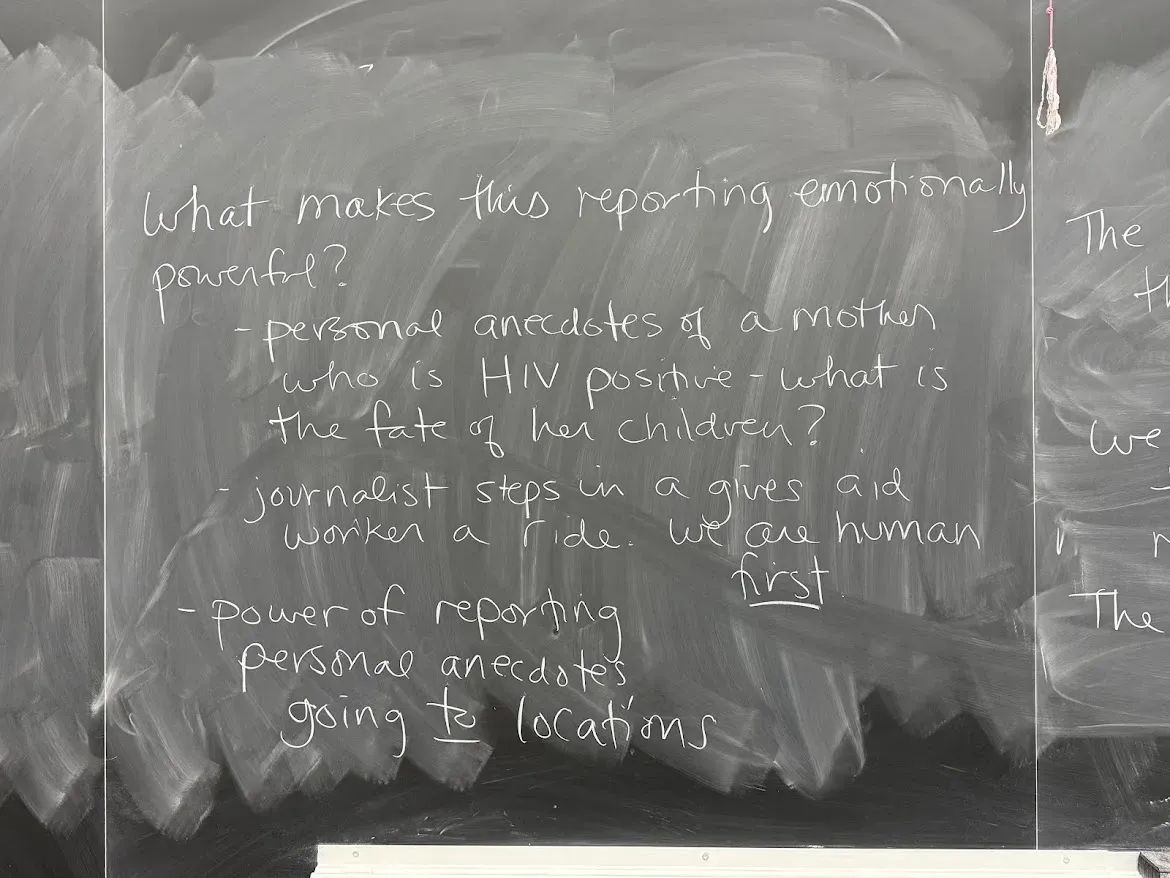 What makes this reporting emotionally
powerful?
- personal anecdotes of a mother
who is HIV positive - what is
the fate of her children?
- journalist steps in a gives aid
worker a ride. we are human
first
- power of reporting
personal anecdotes
going to locations
The
we
The